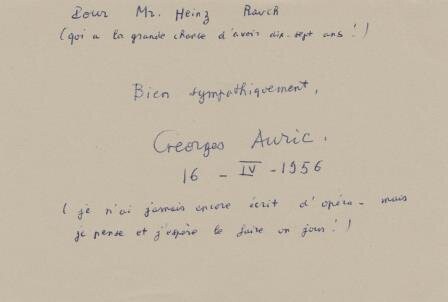 Pour Mr. Heinz Rauch
(qui a la grande chance d'avoir dix-sept ans !)
Bien sympathiquement,
Georges Auric.
16 - IV - 1956
(je n'ai jamais encore écrit d'opéra - mais
je pense et j'espère le faire un jour !)